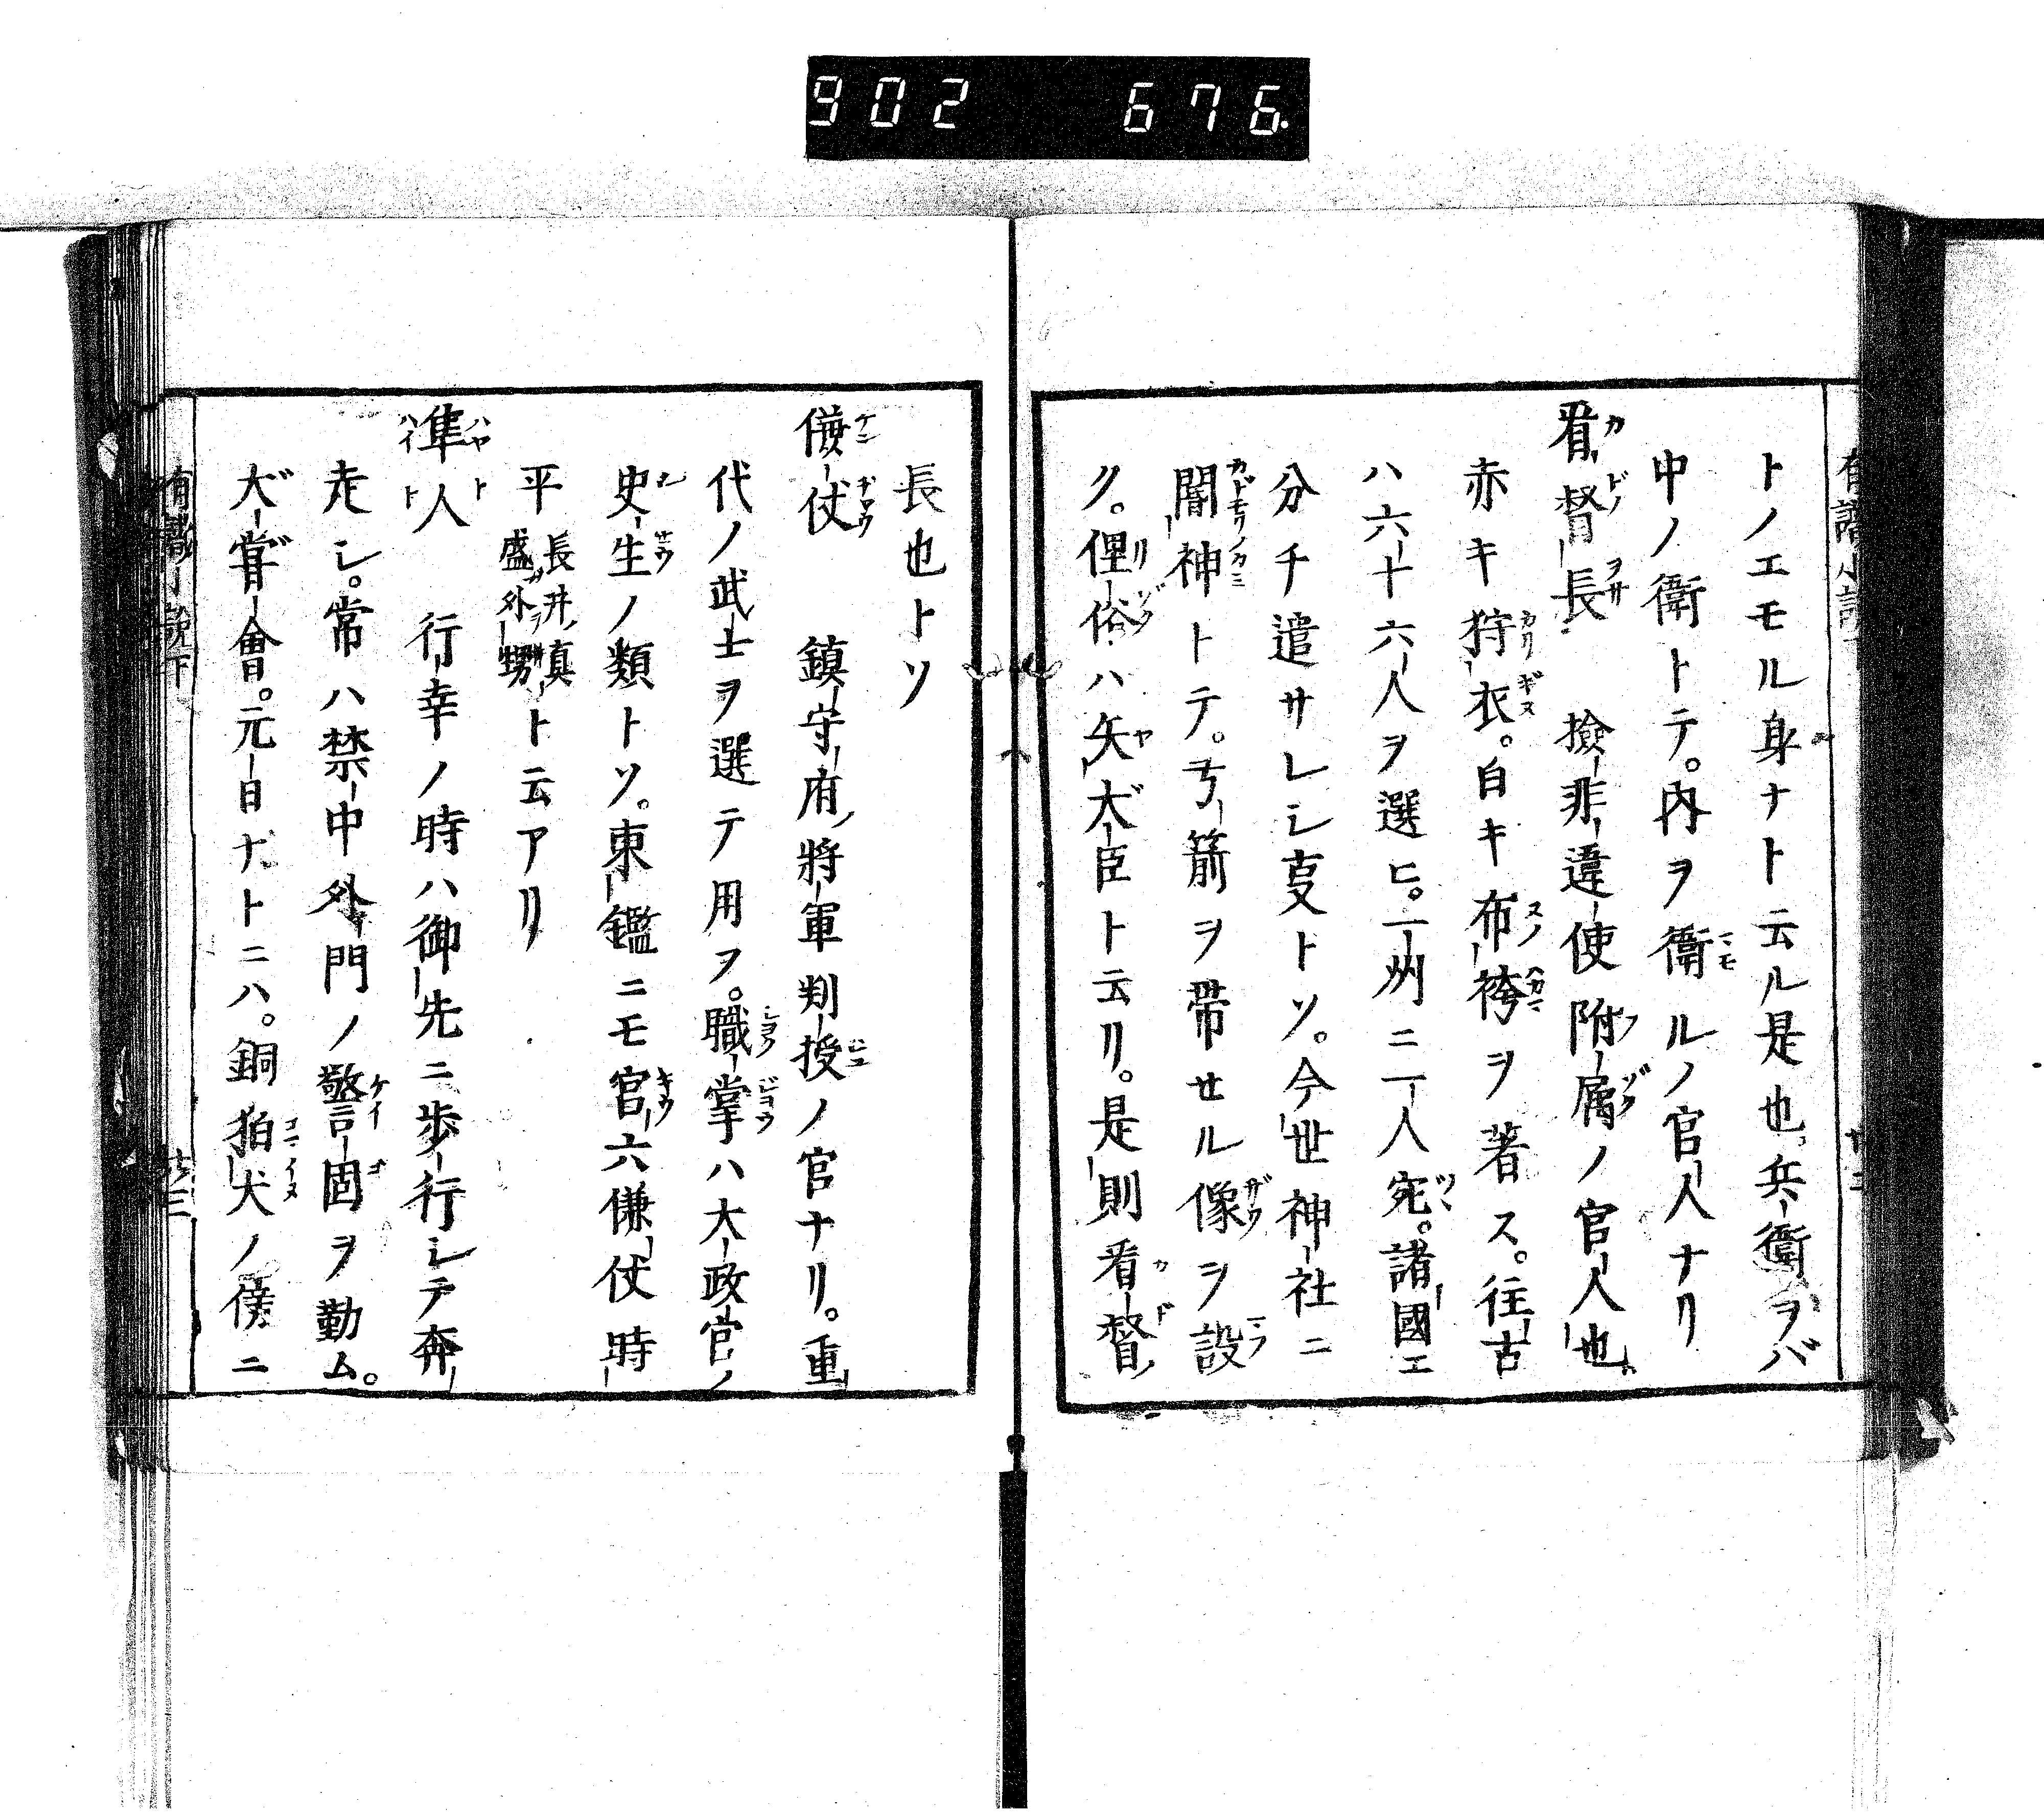 902 676.
トノエモル身ナト云ル是也兵衛ヲバ
中ノ衛トテ。內ヲ衞ルノ官人ナリ
看督長 撿非違使附属ノ官人也
赤キ狩衣。白キ布袴ヲ著ス。往古
ハ六十六人ヲ選ヒ。一州ニ一人宛。諸國エ
分チ遣サレシ叓トソ。今世神社ニ
闇神トテ。弓箭ヲ帯セル像ヲ設
ク。俚俗ハ矢大臣ト云リ。是則看督
長也トソ
傔仗 鎮守府將軍判授ノ官ナリ。重
代ノ武士ヲ選テ用フ。職掌ハ大政官ノ
史生ノ類トソ。東鑑ニモ官六傔仗時
平 長井真盛外甥ト云アリ
隼人 行幸ノ時ハ御先ニ歩行シテ奔
走シ。常ハ禁中外門ノ警固ヲ勤ム。
大甞會。元日ナトニハ。銅狛犬ノ傍ニ
有職小說下